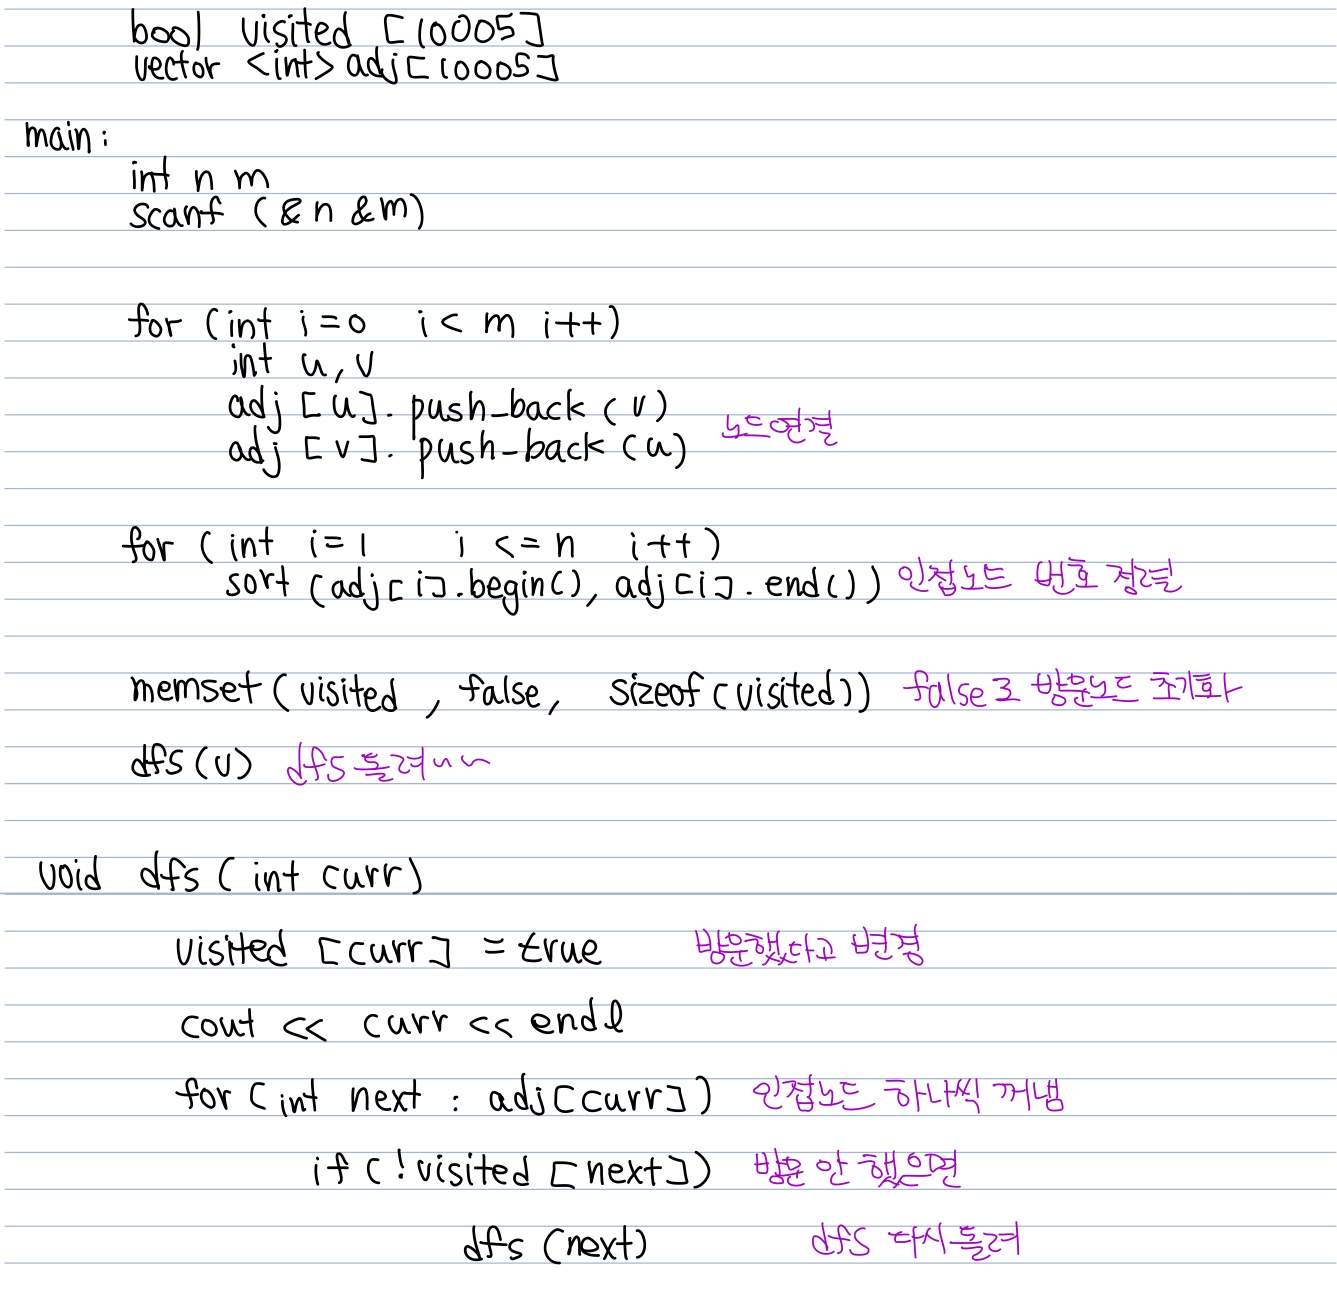 bool visited [10005]
vector <int> adj[10005]
main:
int n m
scanf (&n &m)
for (int i=0 i< m i++)
int u, v
adj [u]. push_back (v)
노드연결
adj [v]. push_back (u)
for (int i=1 i <=n i++)
sort (adj[i].begin(), adj[i].end()) 인접노드 번호 정렬
memset(visited , false, sizeof(visited)) false로 방문노드 초기화
dfs(v) dfs 돌려~~
void dfs (int curr)
visited [curr] = true 방문했다고 변경
cout << curr << endl
for (int next : adj[curr]) 인접노드 하나씩 꺼냄
if (!visited [next]) 방문 안 했으면
dfs (next) dfs 다시돌려